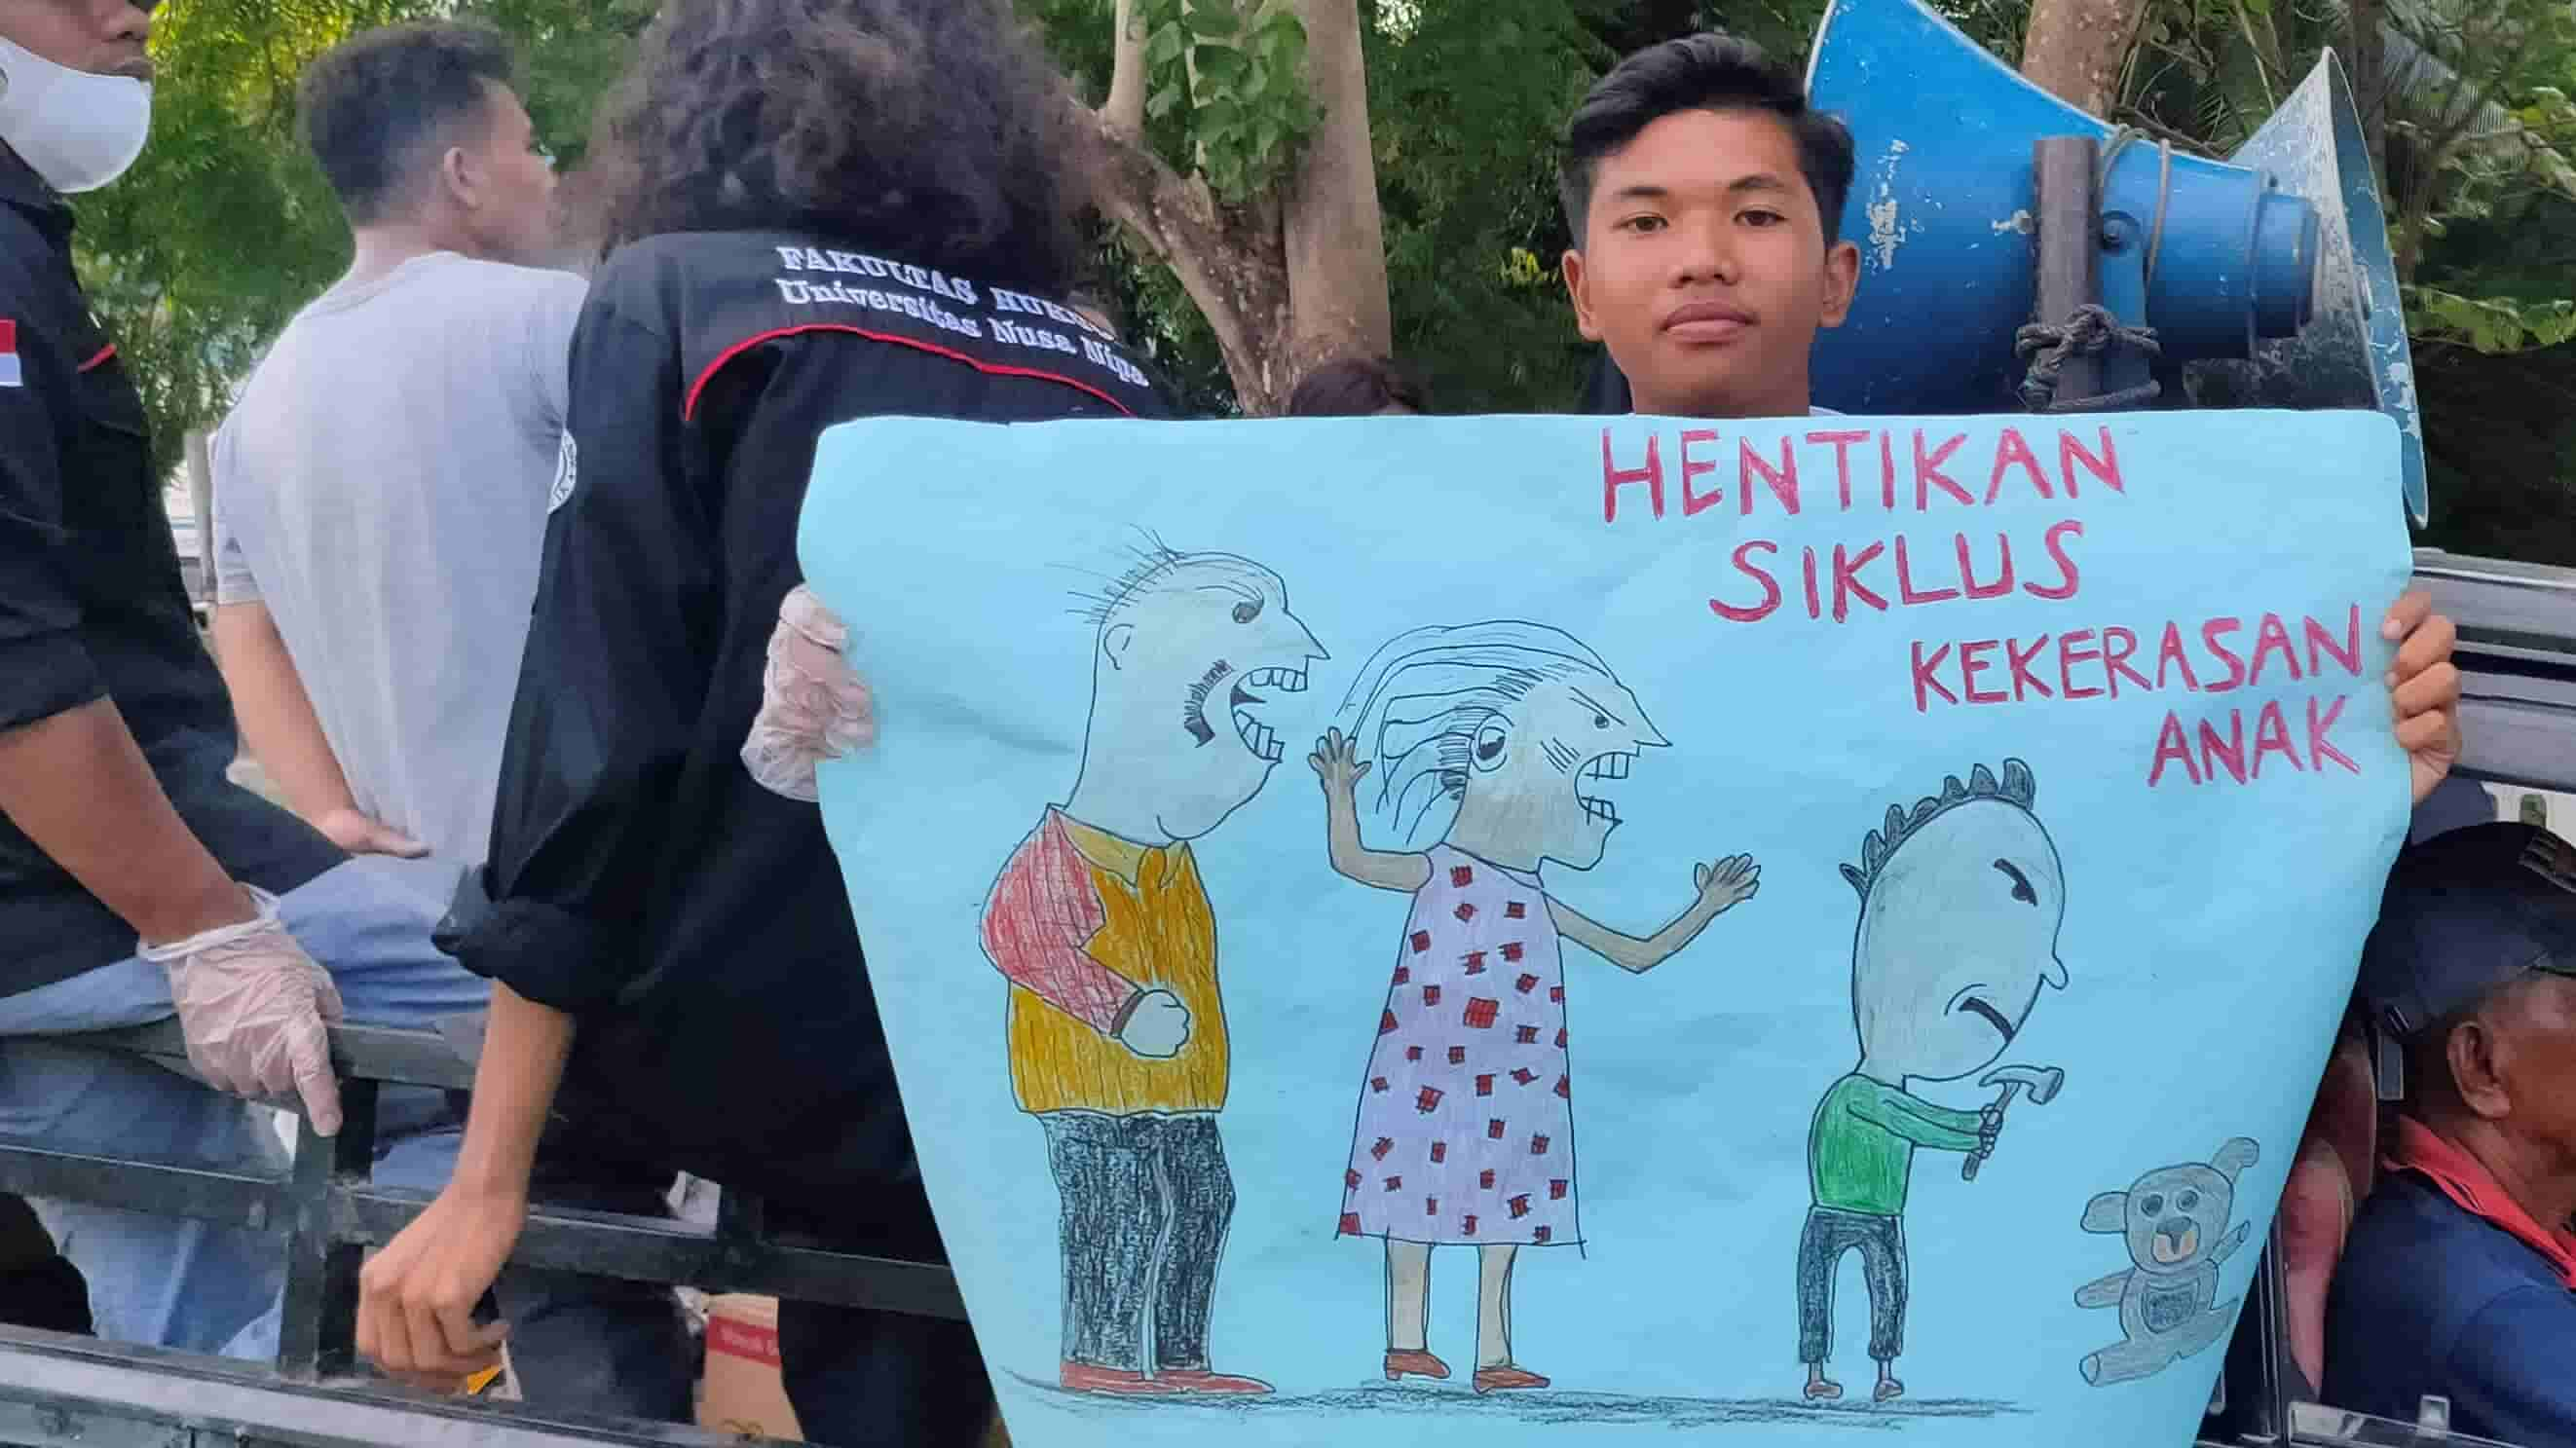 FAKULTAS HUKUM
Universitas Nusa Nipa
HENTIKAN
SIKLUS
KEKERASAN
ANAK